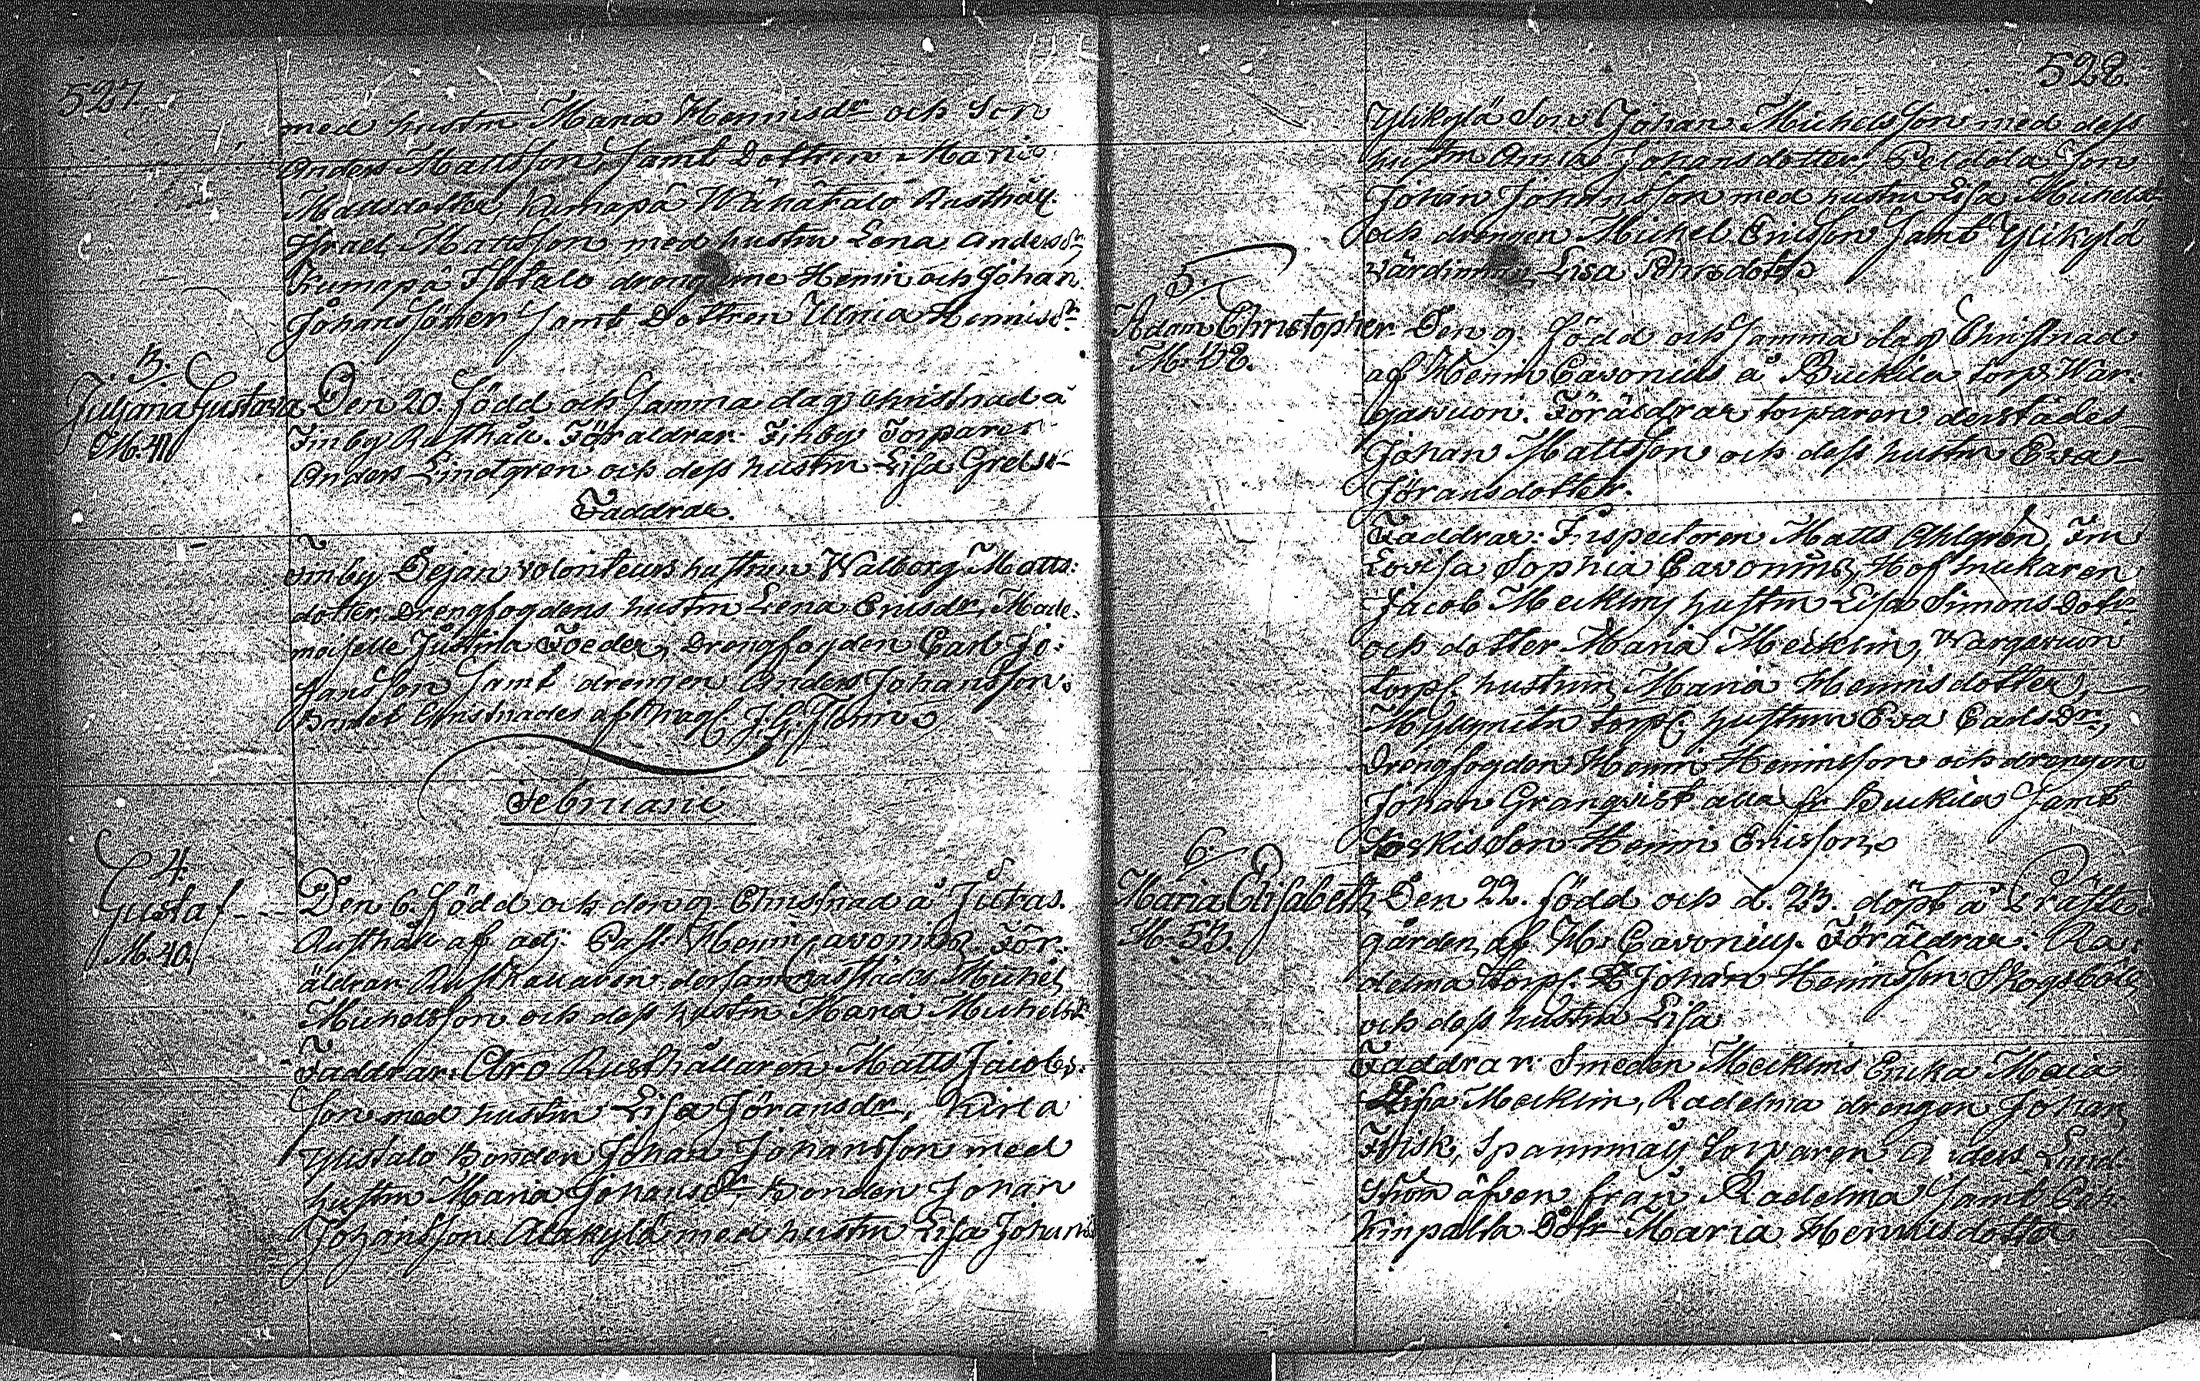 527.
med hustru Maria Henrisdr och Son
Anders Mattsson, samt Dottren Maria
Mattsdotter, Kumopä Wähätalo Rusthåll.
Israel Mattsson med hustru Lena Andersdr
Kumopä Isotalo drengarne Henric och Johan
Johanssöner samt Dottren Ulrica Henrisdr
3.
Juliana Gustava Den 20. född och samma dag christnad å
M. 41
Inby Rusthåll. Föräldrar: Finby Torparen
Anders Lindgren och dess hustru Lisa Greta
Faddrar.
Dejan volonteurs hustrun Walborg Matts:
dotter, Drengfogdens hustru Lena Ericsdr, Made:
moiselle Justina Foeder, Drengfogden Carl Jo:
hansson samt drengen Anders Johansson.
Barnet Christnades af
Februarii
4.
Gustaf --- Den 6. född och den 9. Christnad å Jutas.
M. 40.
Rusthåll af adj. Past. Henric Cavonius. För:
äldrar Rusthållaren dersammastädes Michel
Michelsson och dess hustru Maria Michelsdr
Faddrar: Aro Rusthållaren Matts Jacobs:
son med hustru Lisa Jöransdr, Kirla
Ylistalo Bonden Johan Johansson med
hustru Maria Johansdr Bonden Johan
Johansson Alakylä med hustru Lisa Johans
528.
Ylikylä Son Johan Michelsson med dess
hustru Anna Johansdotter, Peldola Son
Johan Johansson med hustru Lisa Michelsdr
och drengen Michel Ericsson samt Ylikylä
värdinnan Lisa
5.
Adam Christopher. Den 9. född och samma dag Christnad
M. 42.
af Henric Cavonius å Buckila torp War:
gavuori. Föräldrar torparen derstädes
Johan Mattsson och dess hustru Eva
Jöransdotter.
Faddrar: Inspectoren Matts Ahlgren,
Lovisa Sophia Cavonius, Hofslukaren
Jacob Mecklins hustru Lisa Simons Dotr
och dotter Maria Mecklin, Wargavuori
torp. hustrun Maria Henrisdotter,
torp. hustrun Eva Carls Dr,
Drengfogden Henric Henricsson och drengen
Johan Granqvist alla fr Buckila samt
Koskis Son Henric Ericsson
6.
Maria Elisabeth, Den 22. född och d. 23. döpt å Präste:
M. 33.
gården af H. Cavonius. Föräldrar: Ra:
delma torp. Johan Henricsson Skogsböle
och dess hustru Lisa
Faddrar: Smeden Mecklins Erika Maja
Lisa Mecklin, Radelma drengen Johan
Frisk, Spannmäs torparen Anders Lind:
ström äfven från Radelma samt
Kinpalla Dotr Maria Henrisdotter